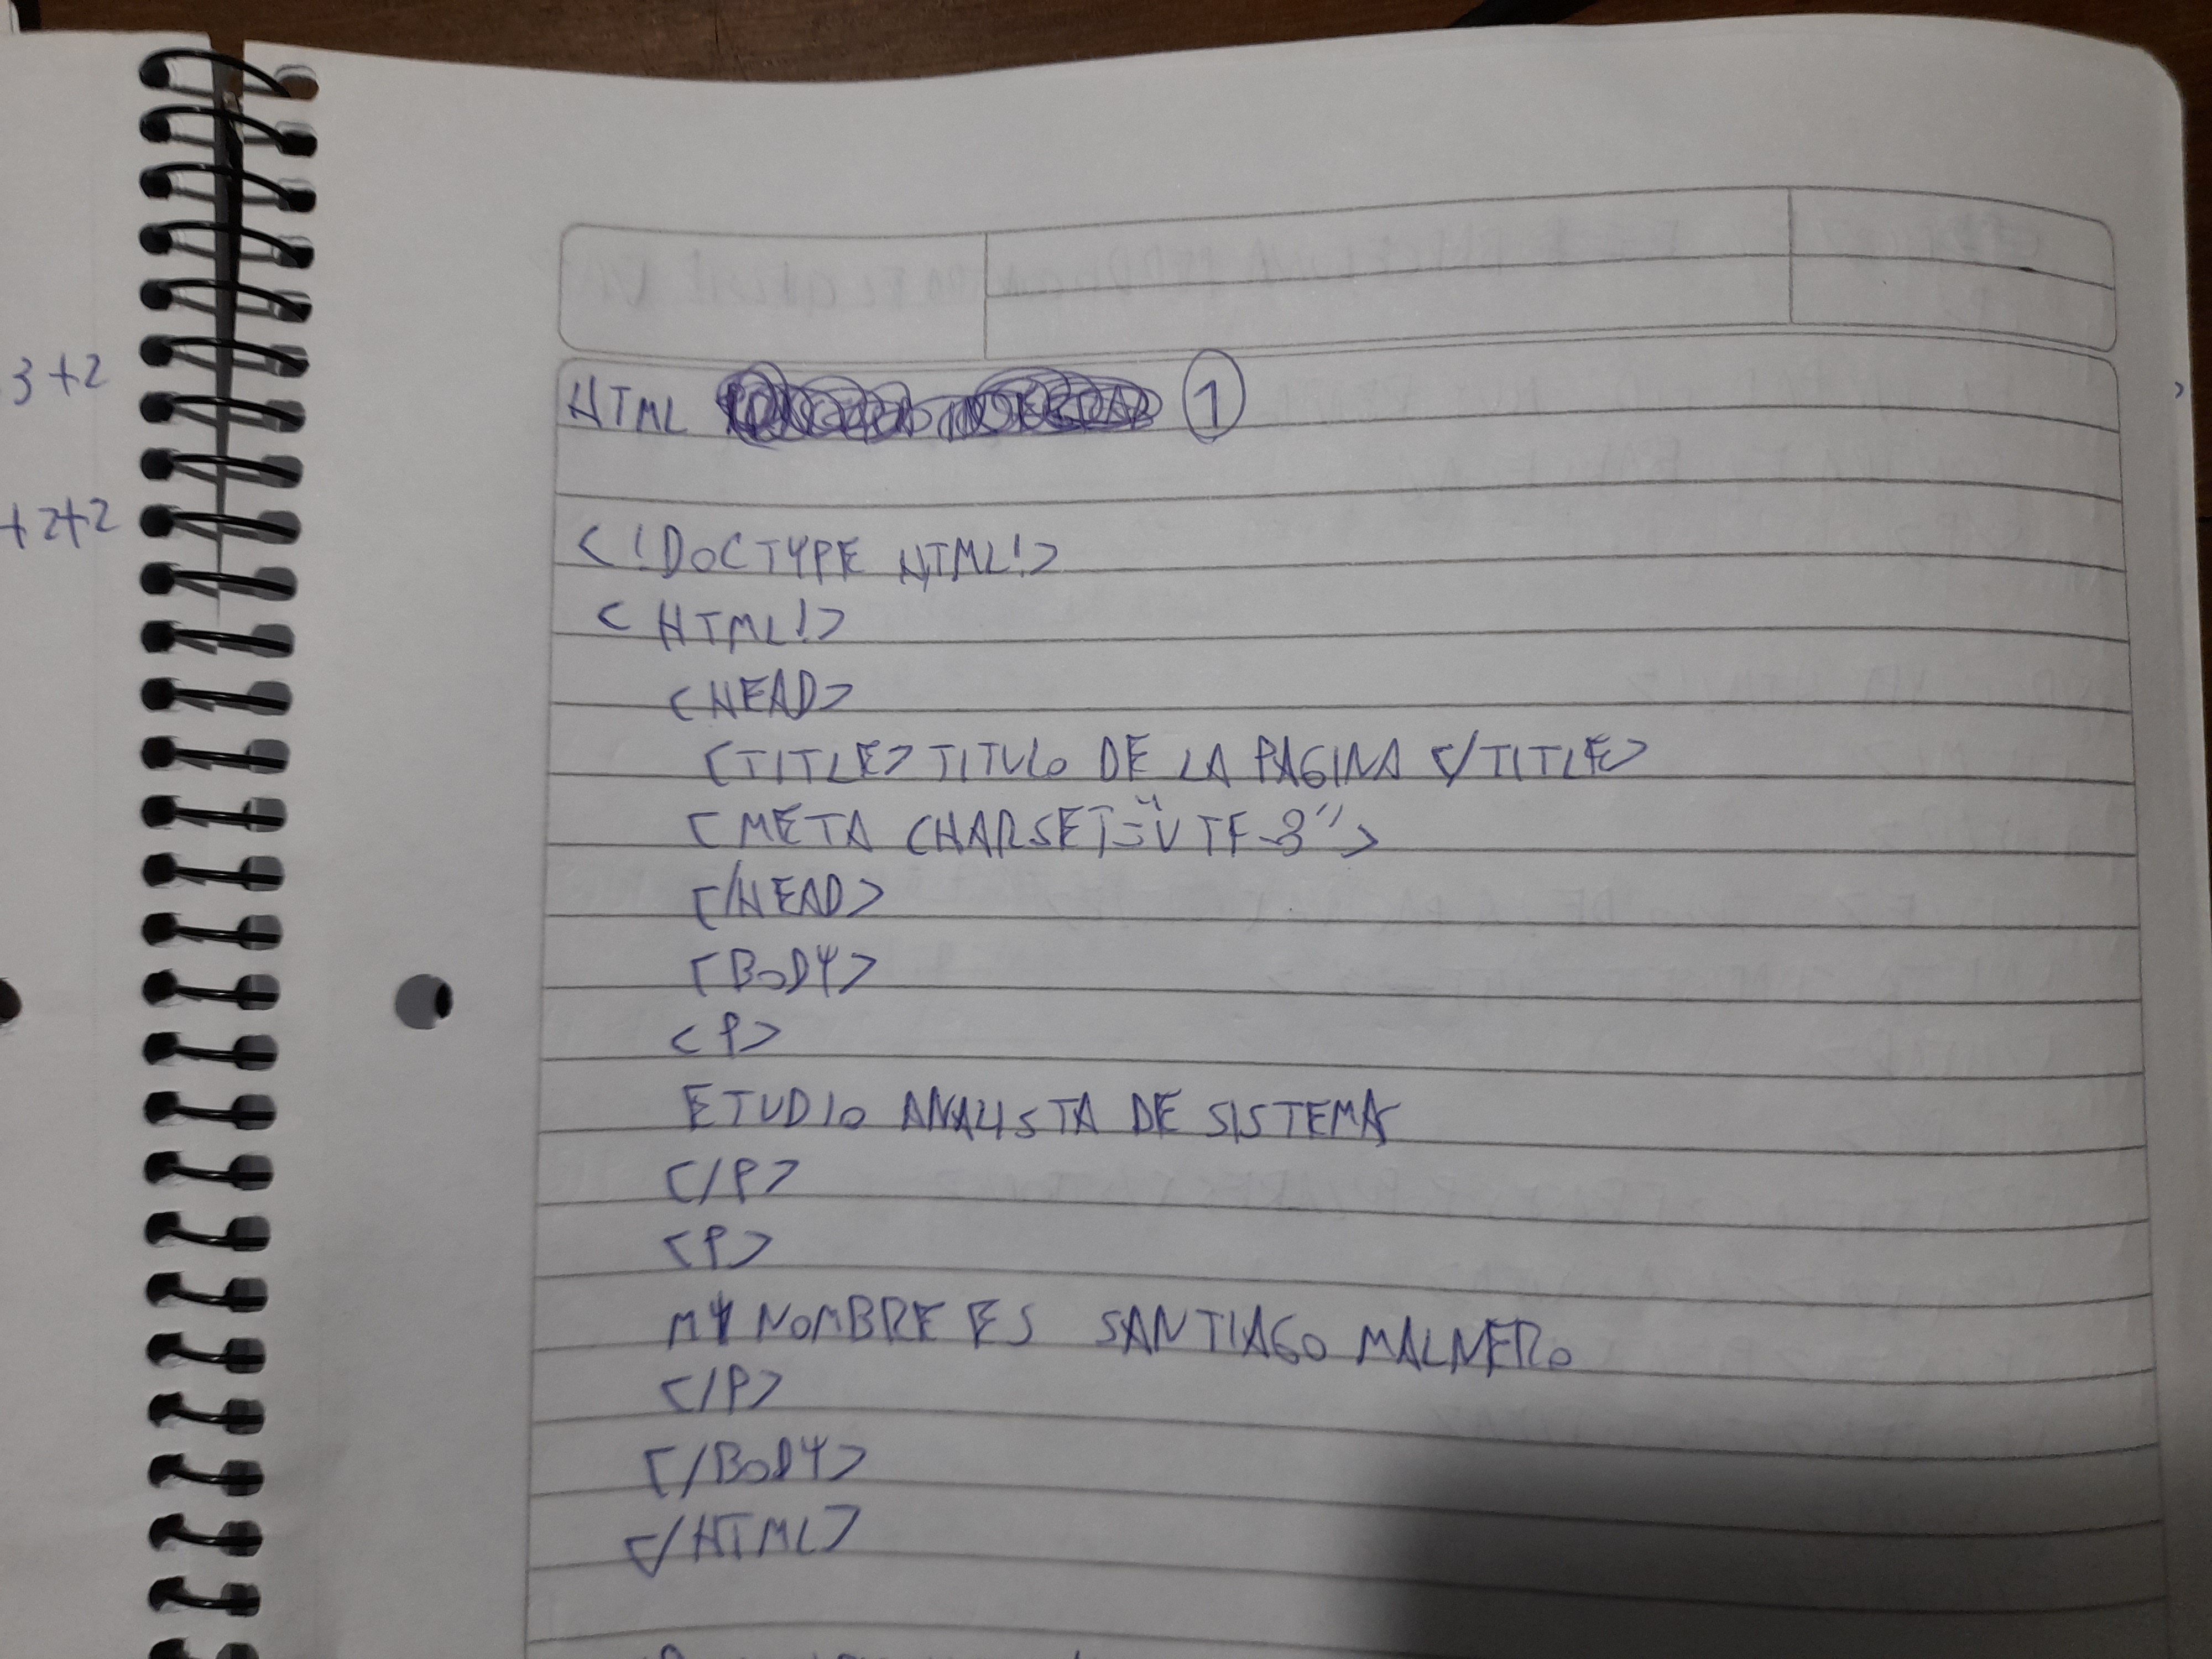 3+2
+2+2
HTML 1
<!DOCTYPE HTML!>
<HTML!>
<HEAD>
<TITLE>TITULO DE LA PAGINA </TITLE>
<META CHARSET="UTF-8">
</HEAD>
<BODY>
<P>
ETUDIO ANALISTA DE SISTEMAS
</P>
<P>
MY NOMBRE ES SANTIAGO MALNERO
</P>
</BODY>
</HTML>